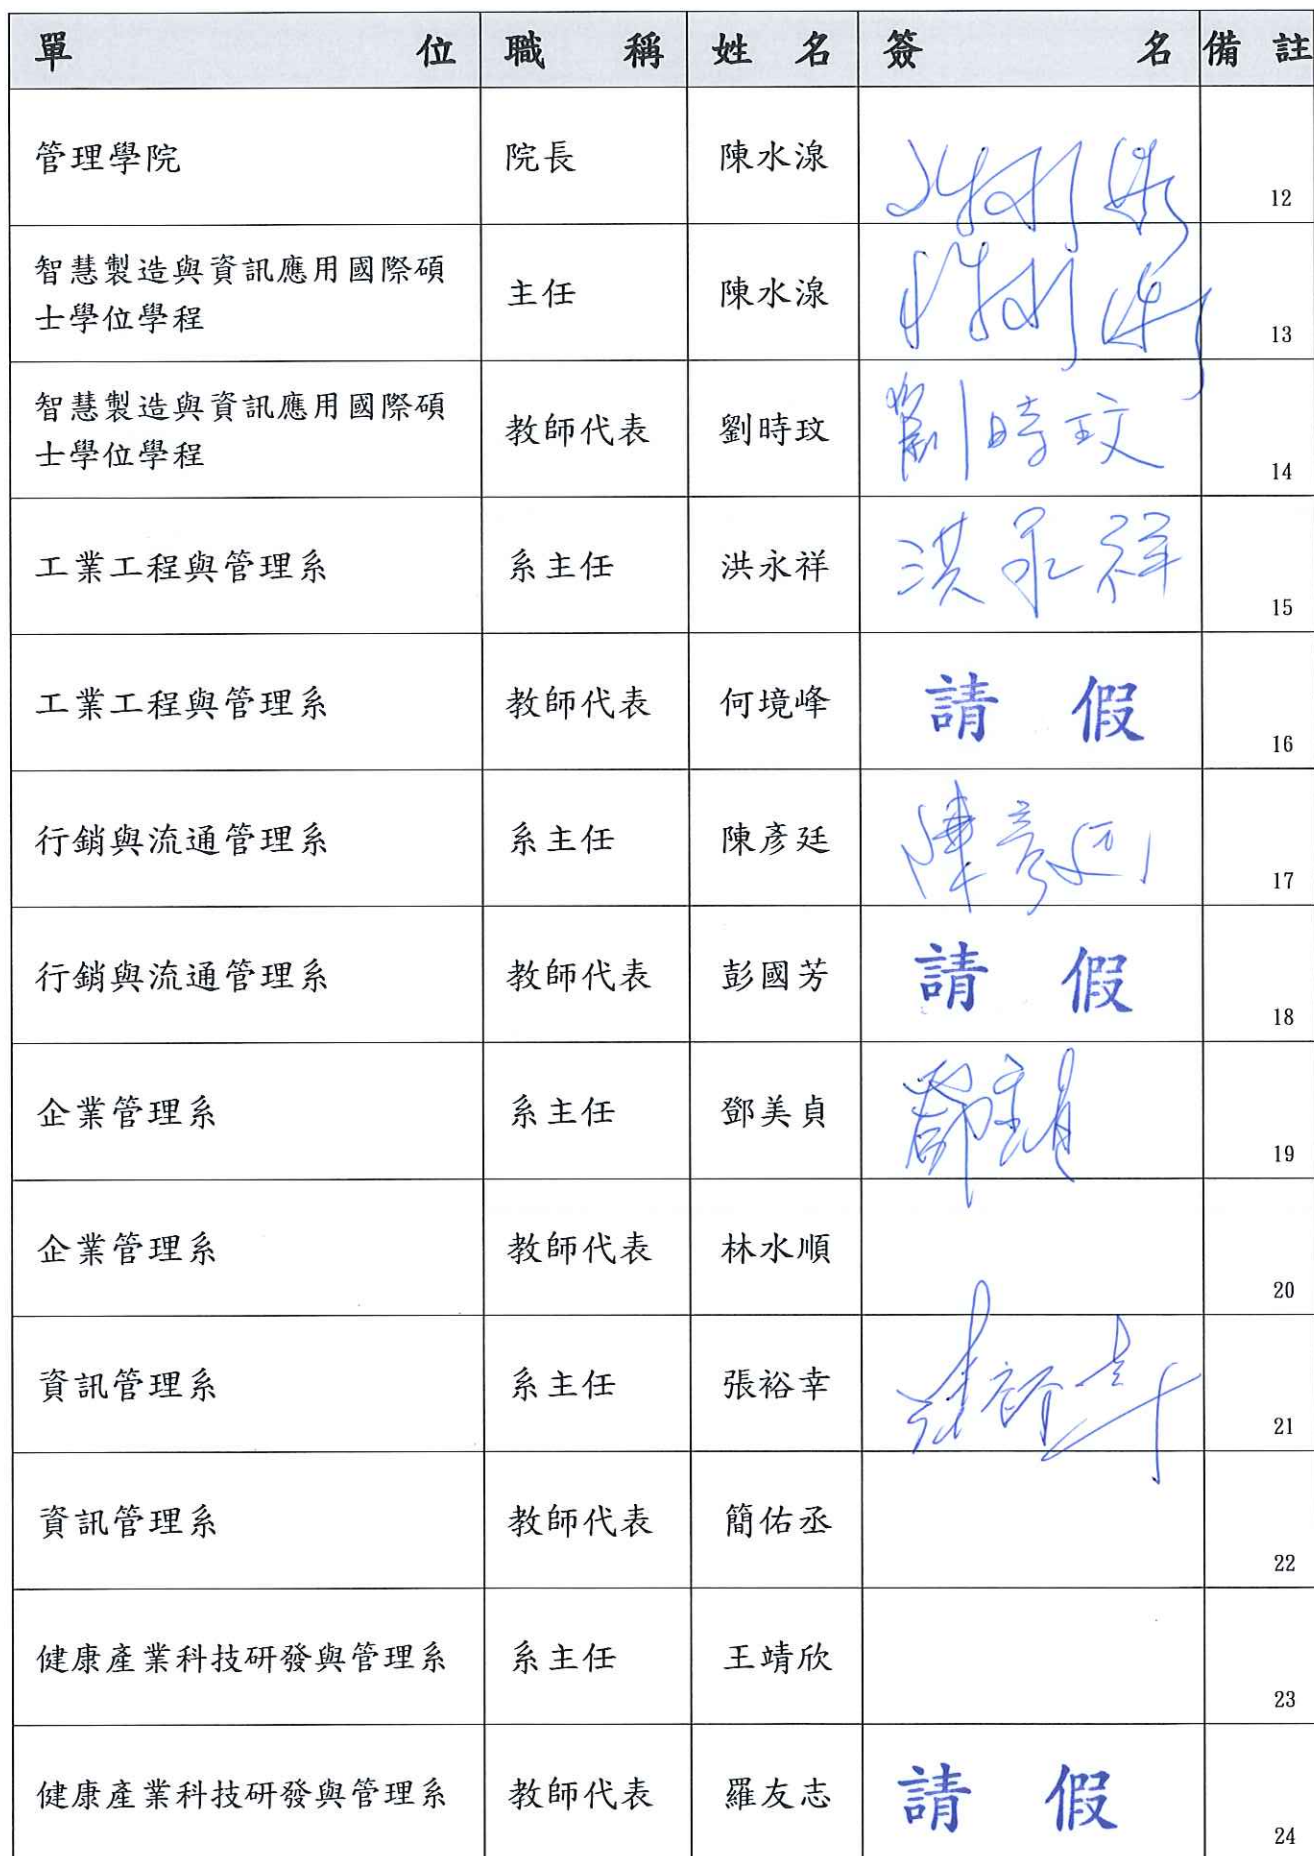 單位 職稱 姓名 簽名 備註
管理學院 院長 陳水湶 12
智慧製造與資訊應用國際碩
士學位學程 主任 陳水湶 13
智慧製造與資訊應用國際碩
士學位學程 教師代表 劉時玟 劉時玟 14
工業工程與管理系 系主任 洪永祥 洪永祥 15
工業工程與管理系 教師代表 何境峰 請假 16
行銷與流通管理系 系主任 陳彥廷 陳彥廷 17
行銷與流通管理系 教師代表 彭國芳 請假 18
企業管理系 系主任 鄧美貞 鄧美貞 19
企業管理系 教師代表 林水順 20
資訊管理系 系主任 張裕幸 張裕幸 21
資訊管理系 教師代表 簡佑丞 22
健康產業科技研發與管理系 系主任 王靖欣 23
健康產業科技研發與管理系 教師代表 羅友志 請假 24